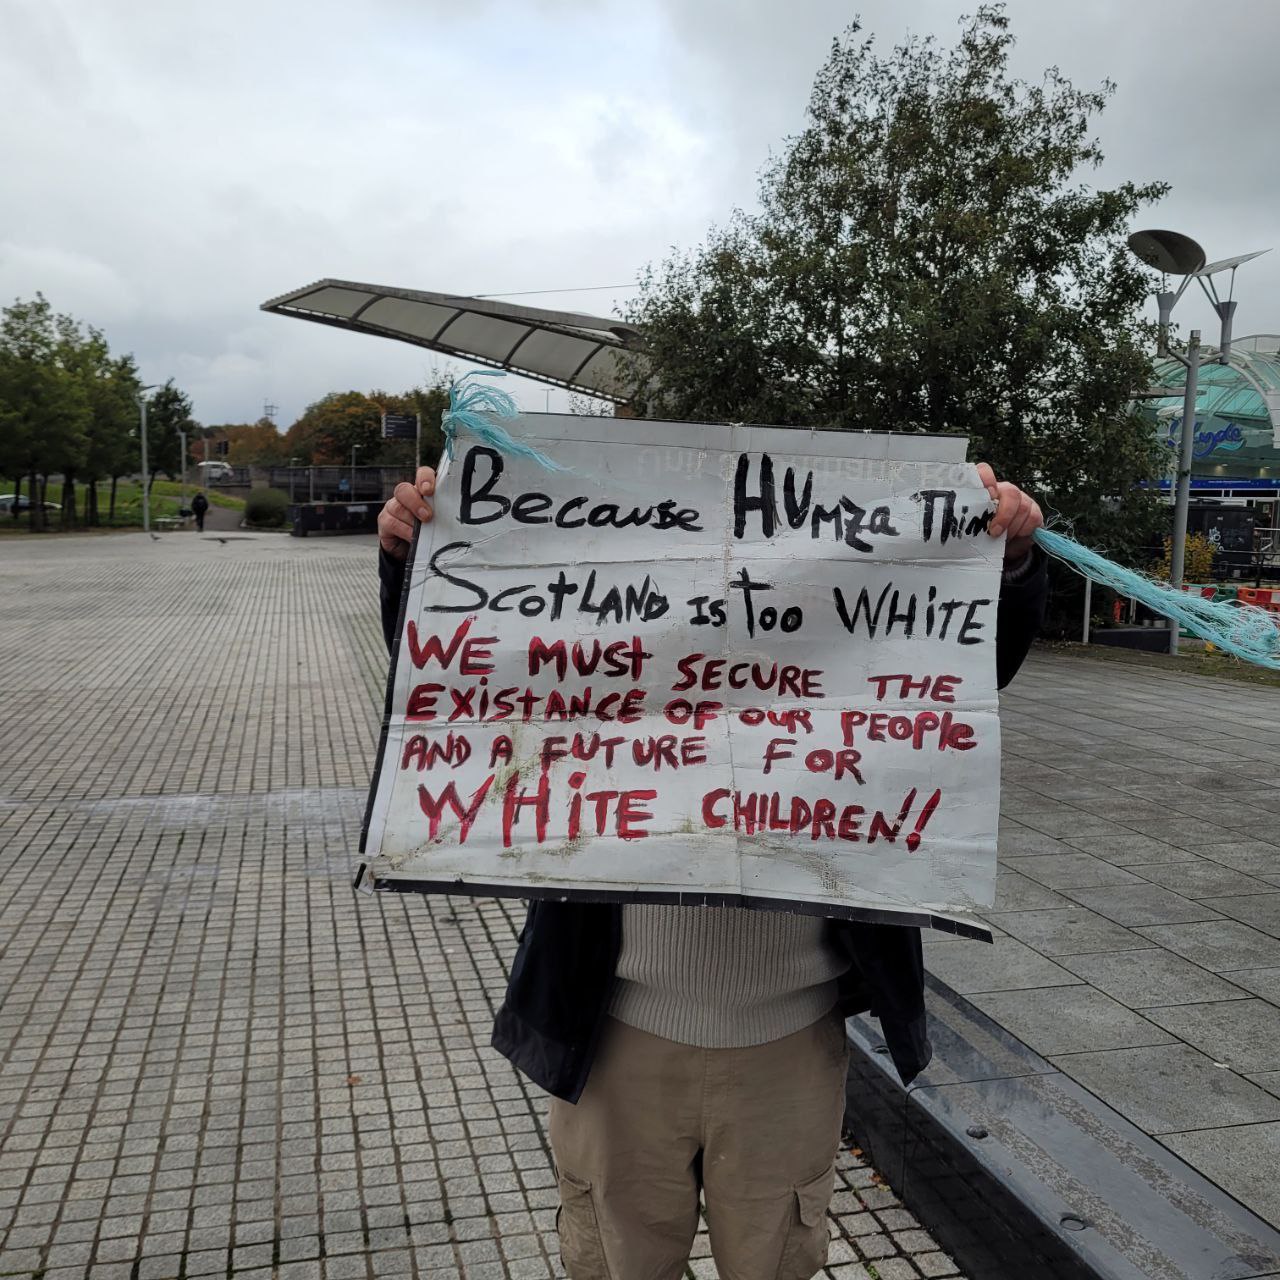 Because HUmza Think
ScotLAND is Too WHITE
WE MUST SECURE THE
EXISTANCE OF OUR PEOPLE
AND A FUTURE FOR
WHITE CHILDREN!!
Clyde